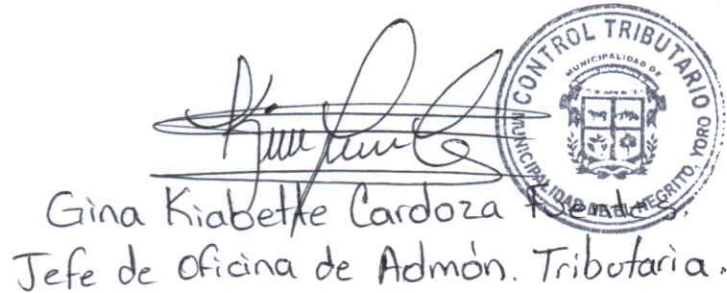 CONTROL TRIBUTARIO
MUNICIPALIDAD DE
MUNICIPALIDAD DE EL NEGRITO, YORO
Gina Kiabette Cardoza
Jefe de Oficina de Admón. Tributaria.